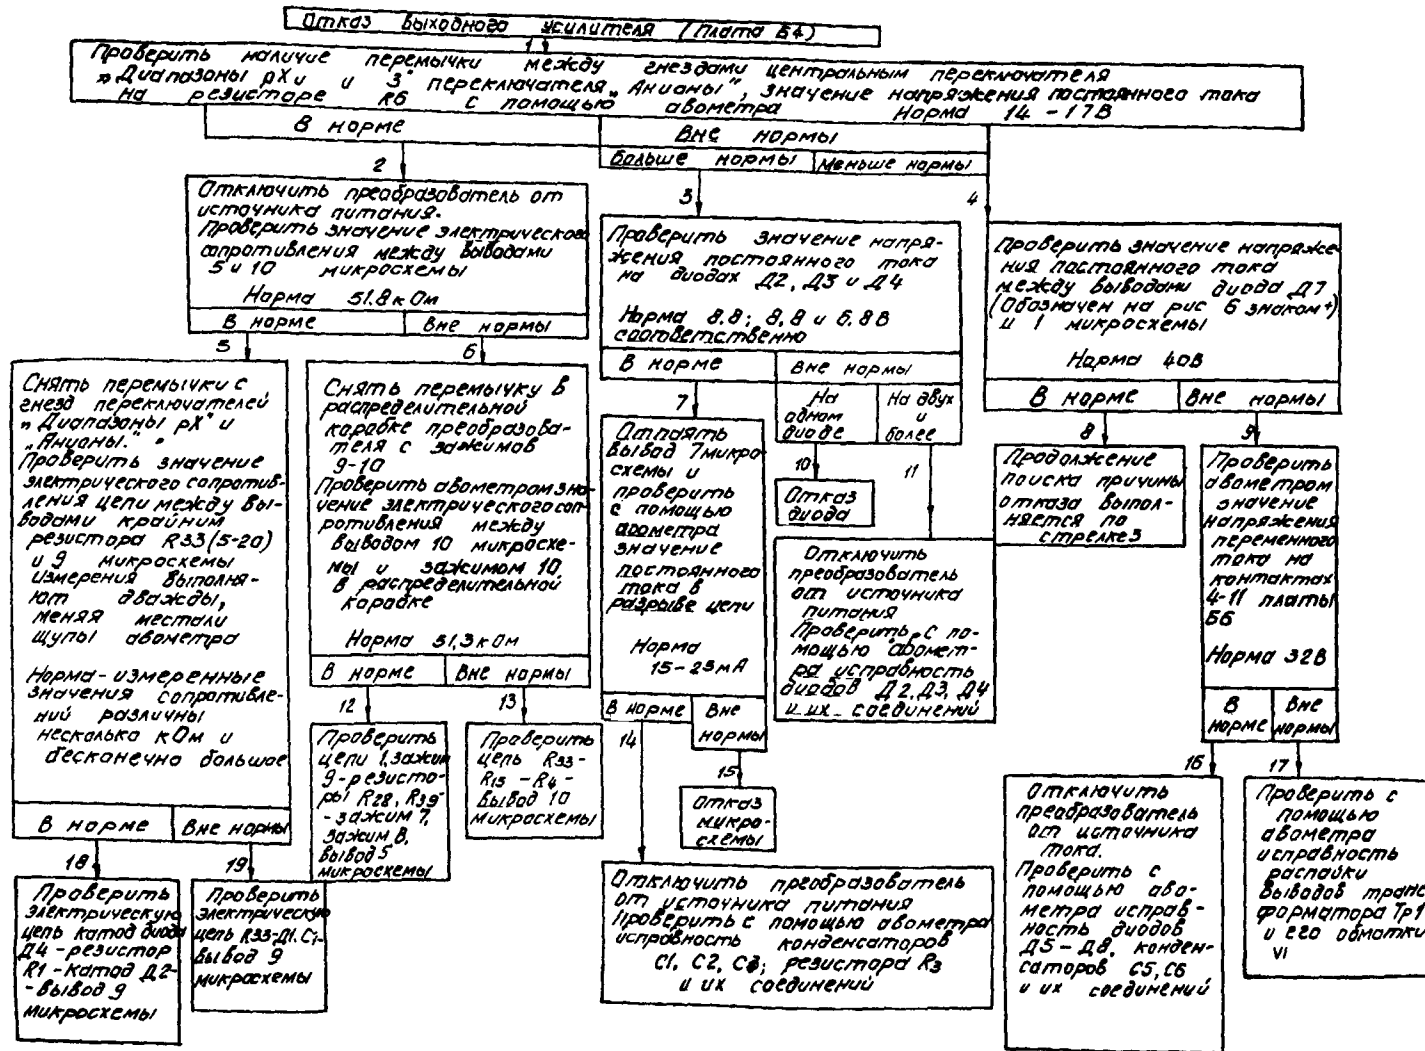 Отказ выходного усилителя (плата Б4)
1
Проверить наличие перемычки между гнездами центральным переключателя
„Диапазоны рХ и и 3" переключателя „Анионы", значение напряжения постоянного тока
на резисторе R6 с помощью авометра Норма 14-17В
В норме
Вне нормы
Больше нормы
Меньше нормы
2
Отключить преобразователь от
источника питания.
Проверить значение электрического
сопротивления между выводами
5 и 10 микросхемы
Норма 51.8 кОм
В норме
Вне нормы
3
Проверить значение напря-
жения постоянного тока
на диодах Д2, Д3 и Д4
Норма 8.8; 8,8 и 6.8В
соответственно
В норме
Вне нормы
На
одном
диоде
На двух
и
более
4
Проверить значение напряже-
ния постоянного тока
между выводами диода Д7
(Обозначен на рис 6 знаком +)
и 1 микросхемы
Норма 40В
В норме
Вне нормы
5
Снять перемычки с
гнезд переключателей
„Диапазоны рХ" и
„Анионы."
Проверить значение
электрического сопротив-
ления цепи между вы-
водами крайним
резистора R33 (5-20)
и 9 микросхемы
измерения выполня-
ют дважды,
меняя местали
щупы авометра
Норма-измеренные
значения сопротивле-
ний различны
несколько кОм и
бесконечно большое
В норме
Вне нормы
6
Снять перемычку в
распределительной
коробке преобразова-
теля с зажимов
9-10
Проверить авометром зна-
чение электрического соп-
ротивления между
выводом 10 микросхе-
мы и зажимом 10
в распределительной
коробке
Норма 51,3 кОм
В норме
Вне нормы
7
Отпаять
вывод 7 микро-
схемы и
проверить
с помощью
авометра
значение
постоянного
тока в
разрыве цепи
Норма
15-25мА
В норме
Вне
нормы
10
Отказ
диода
11
Отключить
преобразователь
от источника
питания
Проверить с по-
мощью авомет-
ра исправность
диодов Д2, Д3, Д4
и их соединений
8
Продолжение
поиска причины
отказа выпол-
няется по
стрелке 3
9
Проверить
авометром
значение
напряжения
переменного
тока на
контактах
4-11 платы
Б6
Норма 32В
В
норме
Вне
нормы
12
Проверить
цепи 1, зажим
9-резисто-
ры R28, R39
-зажим 7,
зажим 8,
вывод 5
микросхемы
13
Проверить
цепь R33-
R15 - R4-
вывод 10
микросхемы
14
Отключить преобразователь
от источника питания
Проверить с помощью авометра
исправность конденсаторов
С1, С2, С3; резистора R3
и их соединений
15
Отказ
микро-
схемы
16
Отключить
преобразователь
от источника
тока.
Проверить с
помощью аво-
метра исправ-
ность диодов
Д5-Д8, конден-
саторов С5, С6
и их соединений
17
Проверить с
помощью
авометра
исправность
распайки
выводов транс
форматора Тр1
и его обмотки
VI
18
Проверить
электрическую
цепь катод диода
Д4-резистор
R1-катод Д2-
-вывод 9
микросхемы
19
Проверить
электрическую
цепь R33-Д1. С1-
вывод 9
микросхемы